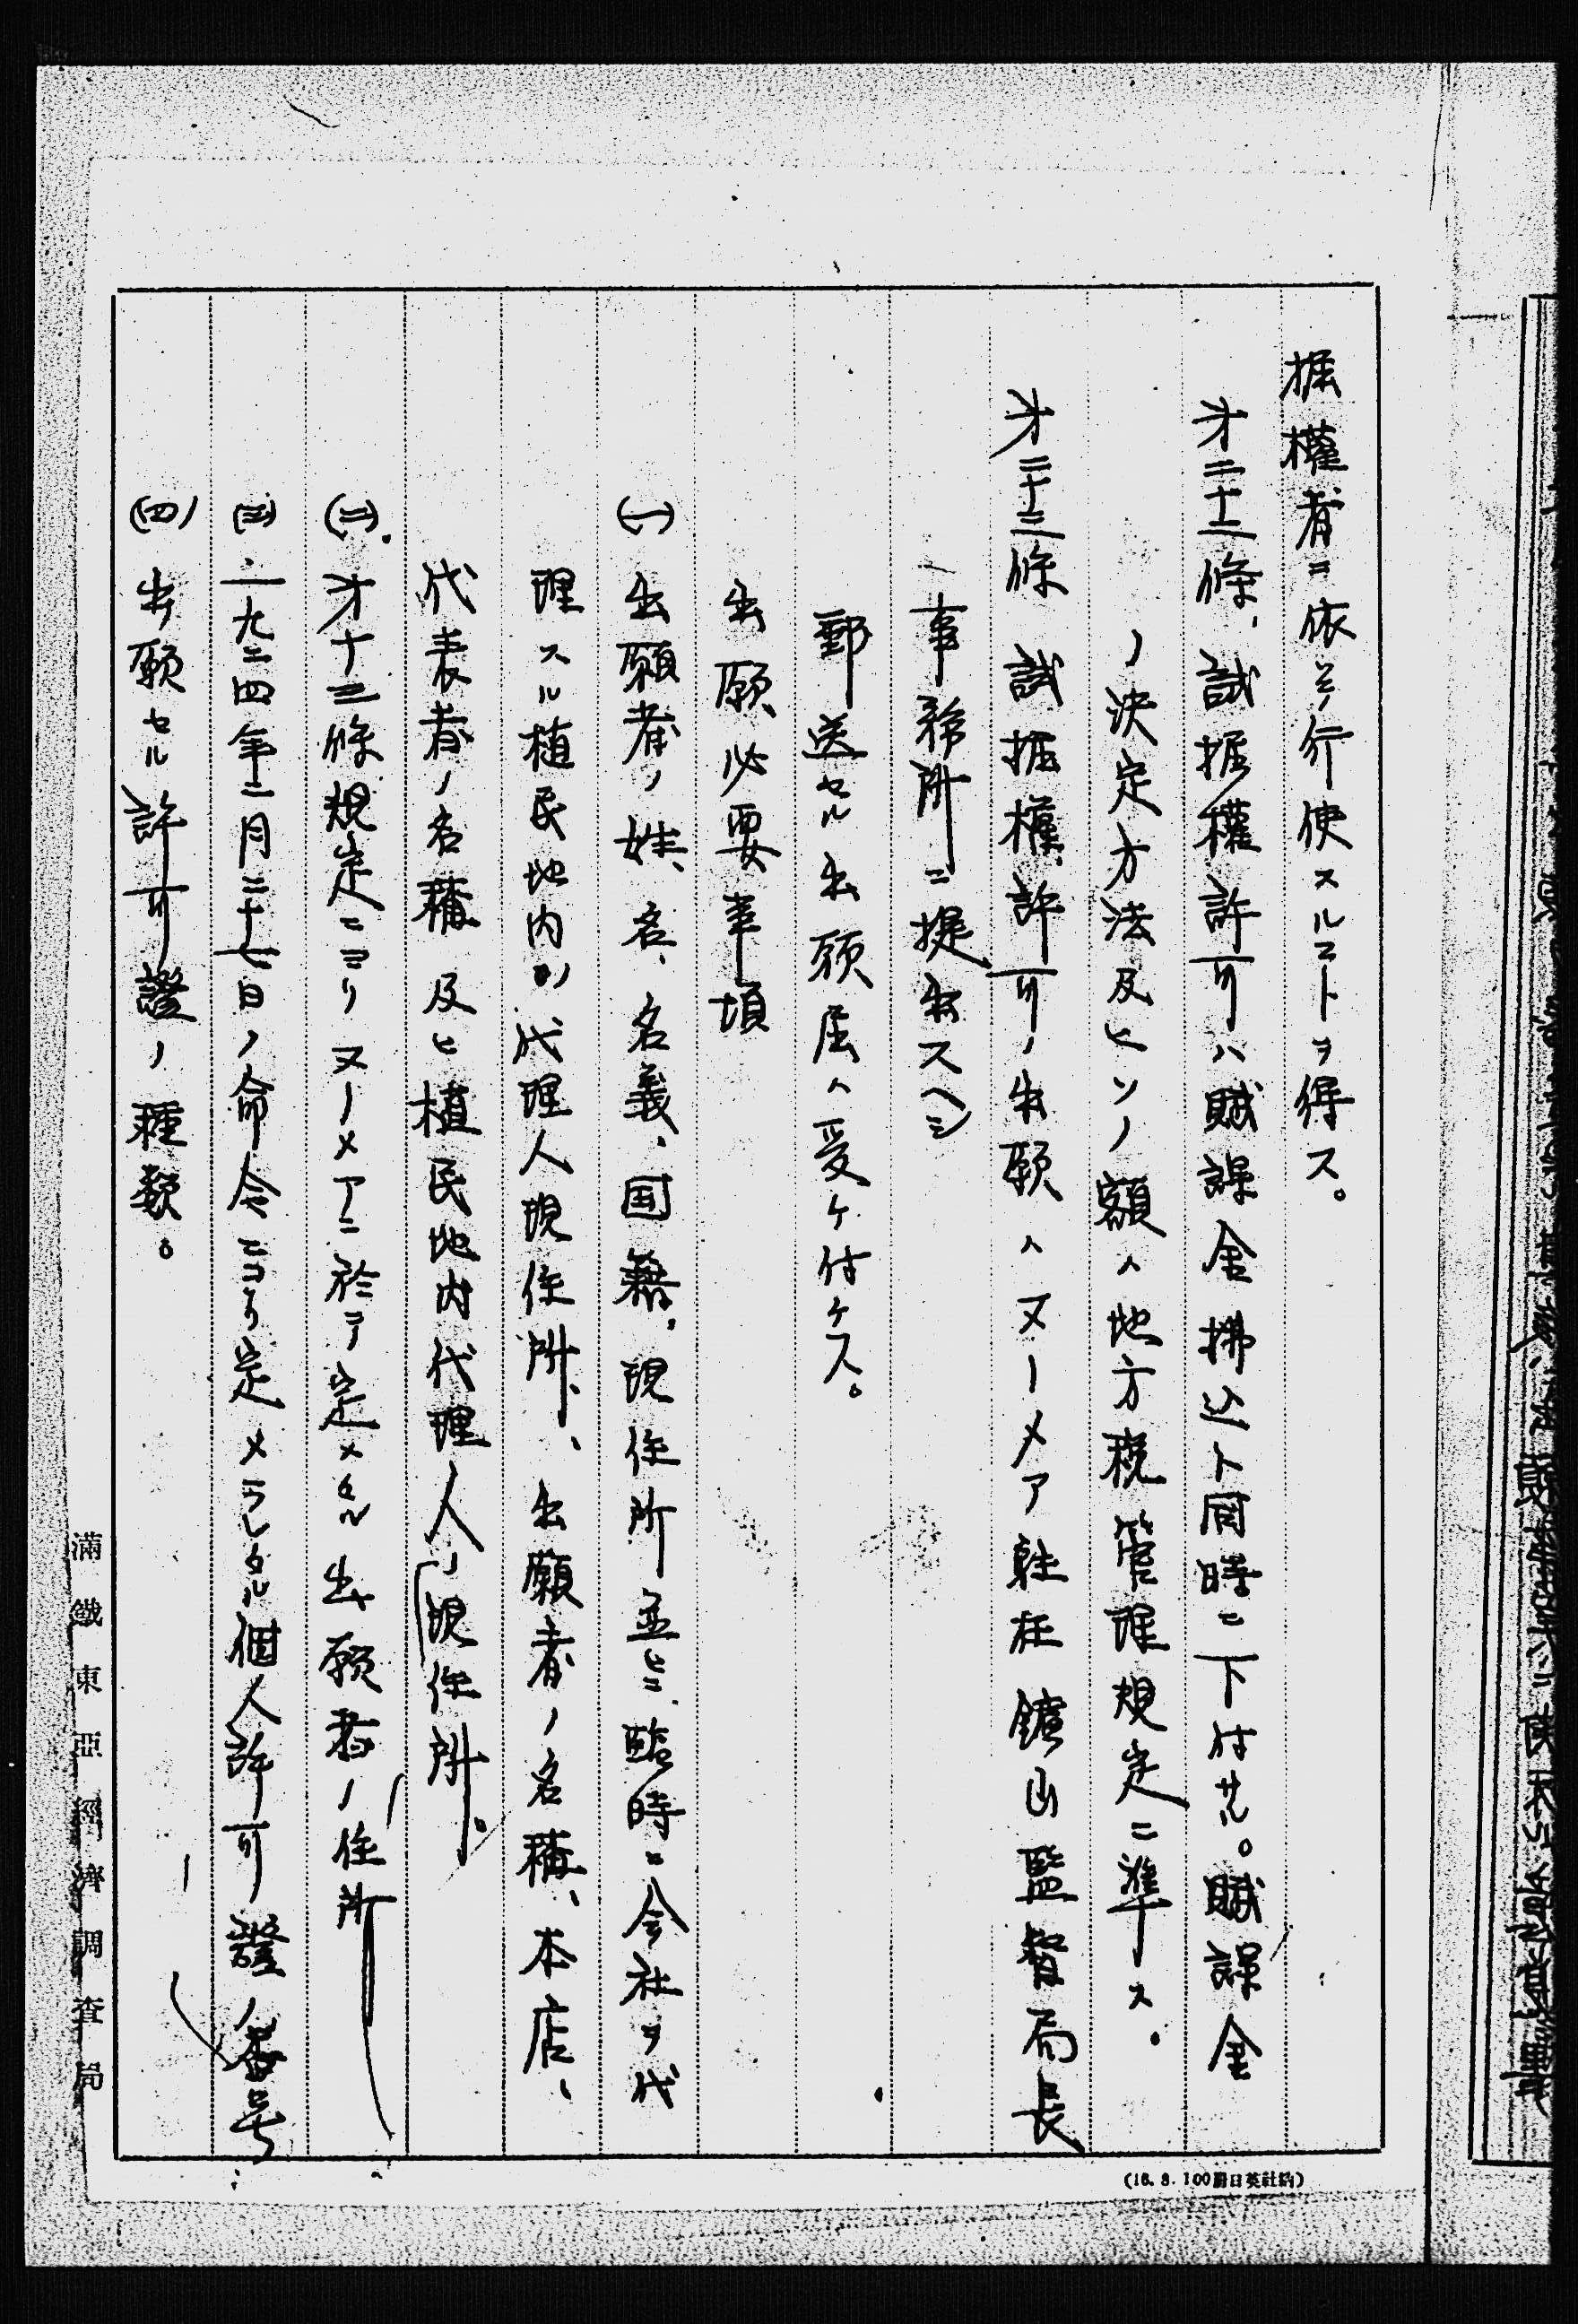 掘權者ニ依ミ行使スルコトヲ得ス。
才二十二條、試掘權許可ハ賦課金拂込ト同時ニ下付サル。賦課金
ノ決定方法及ヒソノ額ハ地方税管理規定ニ準ス。
才二十三條 試掘權許可ノ出願ハヌーメア駐在鑛山監督局長
事務所ニ提出スヘシ
郵送セル出願届ハ受ケ付ケス。
出願必要事項
(一) 出願者ノ姓、名、名義、国籍、現住所並ヒニ臨時ニ会社ヲ代
理スル植民地内ノ代理人現住所、出願者ノ名稱、本店、
代表者ノ名稱及ヒ植民地内代理人ノ現住所。
(二) 才十三條規定ニヨリヌーメアニ於テ定メタル出願者ノ住所
(三) 一九二四年二月二十七日ノ命令ニヨリ定メラレタル個人許可證ノ番号
(四) 出願セル許可證ノ種類。
滿鐵東亞經濟調查局
(18. 8. 100冊日英社納)